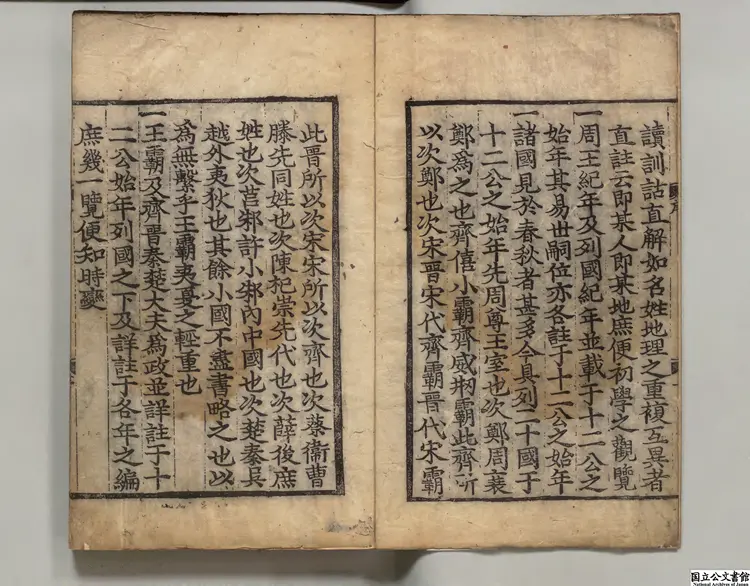 讀訓詁直解如名姓地理之重複互異者
直註云即某人即某地庶便初學之觀覽
一周王紀年及列國紀年並載于十二公之
始年其易世嗣位亦各註于十二公之始年
一諸國見於春秋者甚多今具列二十國于
十二公之始年先周尊王室也次鄭周衰
鄭爲之也齊僖小霸齊威𣃁霸此齊所
以次鄭也次宋晋宋代齊霸晋代宋霸
此晋所以次宋宋所以次齊也次蔡衞曹
滕先同姓也次陳杞崇先代也次薛後庶
姓也次莒邾許小邾內中國也次楚秦吳
越外夷狄也其餘小國不盡書略之也以
爲無繫乎王霸夷夏之輕重也
一王霸及齊晋秦楚大夫爲政並詳註于十
二公始年列國之下及詳註于各年之編
庶幾一覽便知時變
国立公文書館
National Archives of Japan